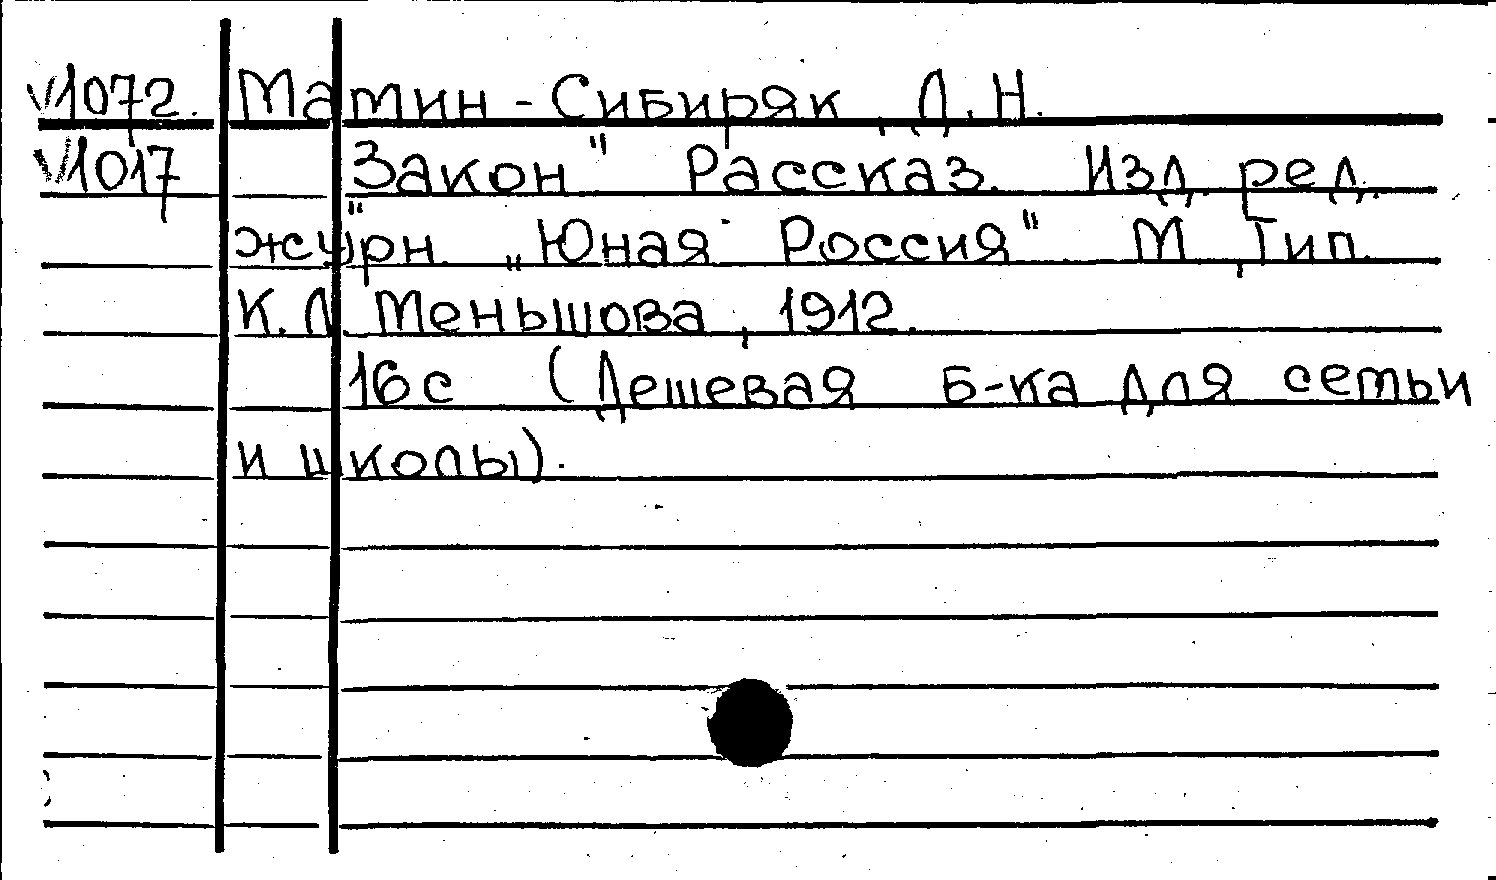 V1072. Мамин-Сибиряк, Д.Н.
V1017 Закон" Рассказ. Изд. ред.
журн. „Юная Россия". М., Тип.
К.Л. Меньшова, 1912.
16с (Дешевая б-ка для семьи
и школы).